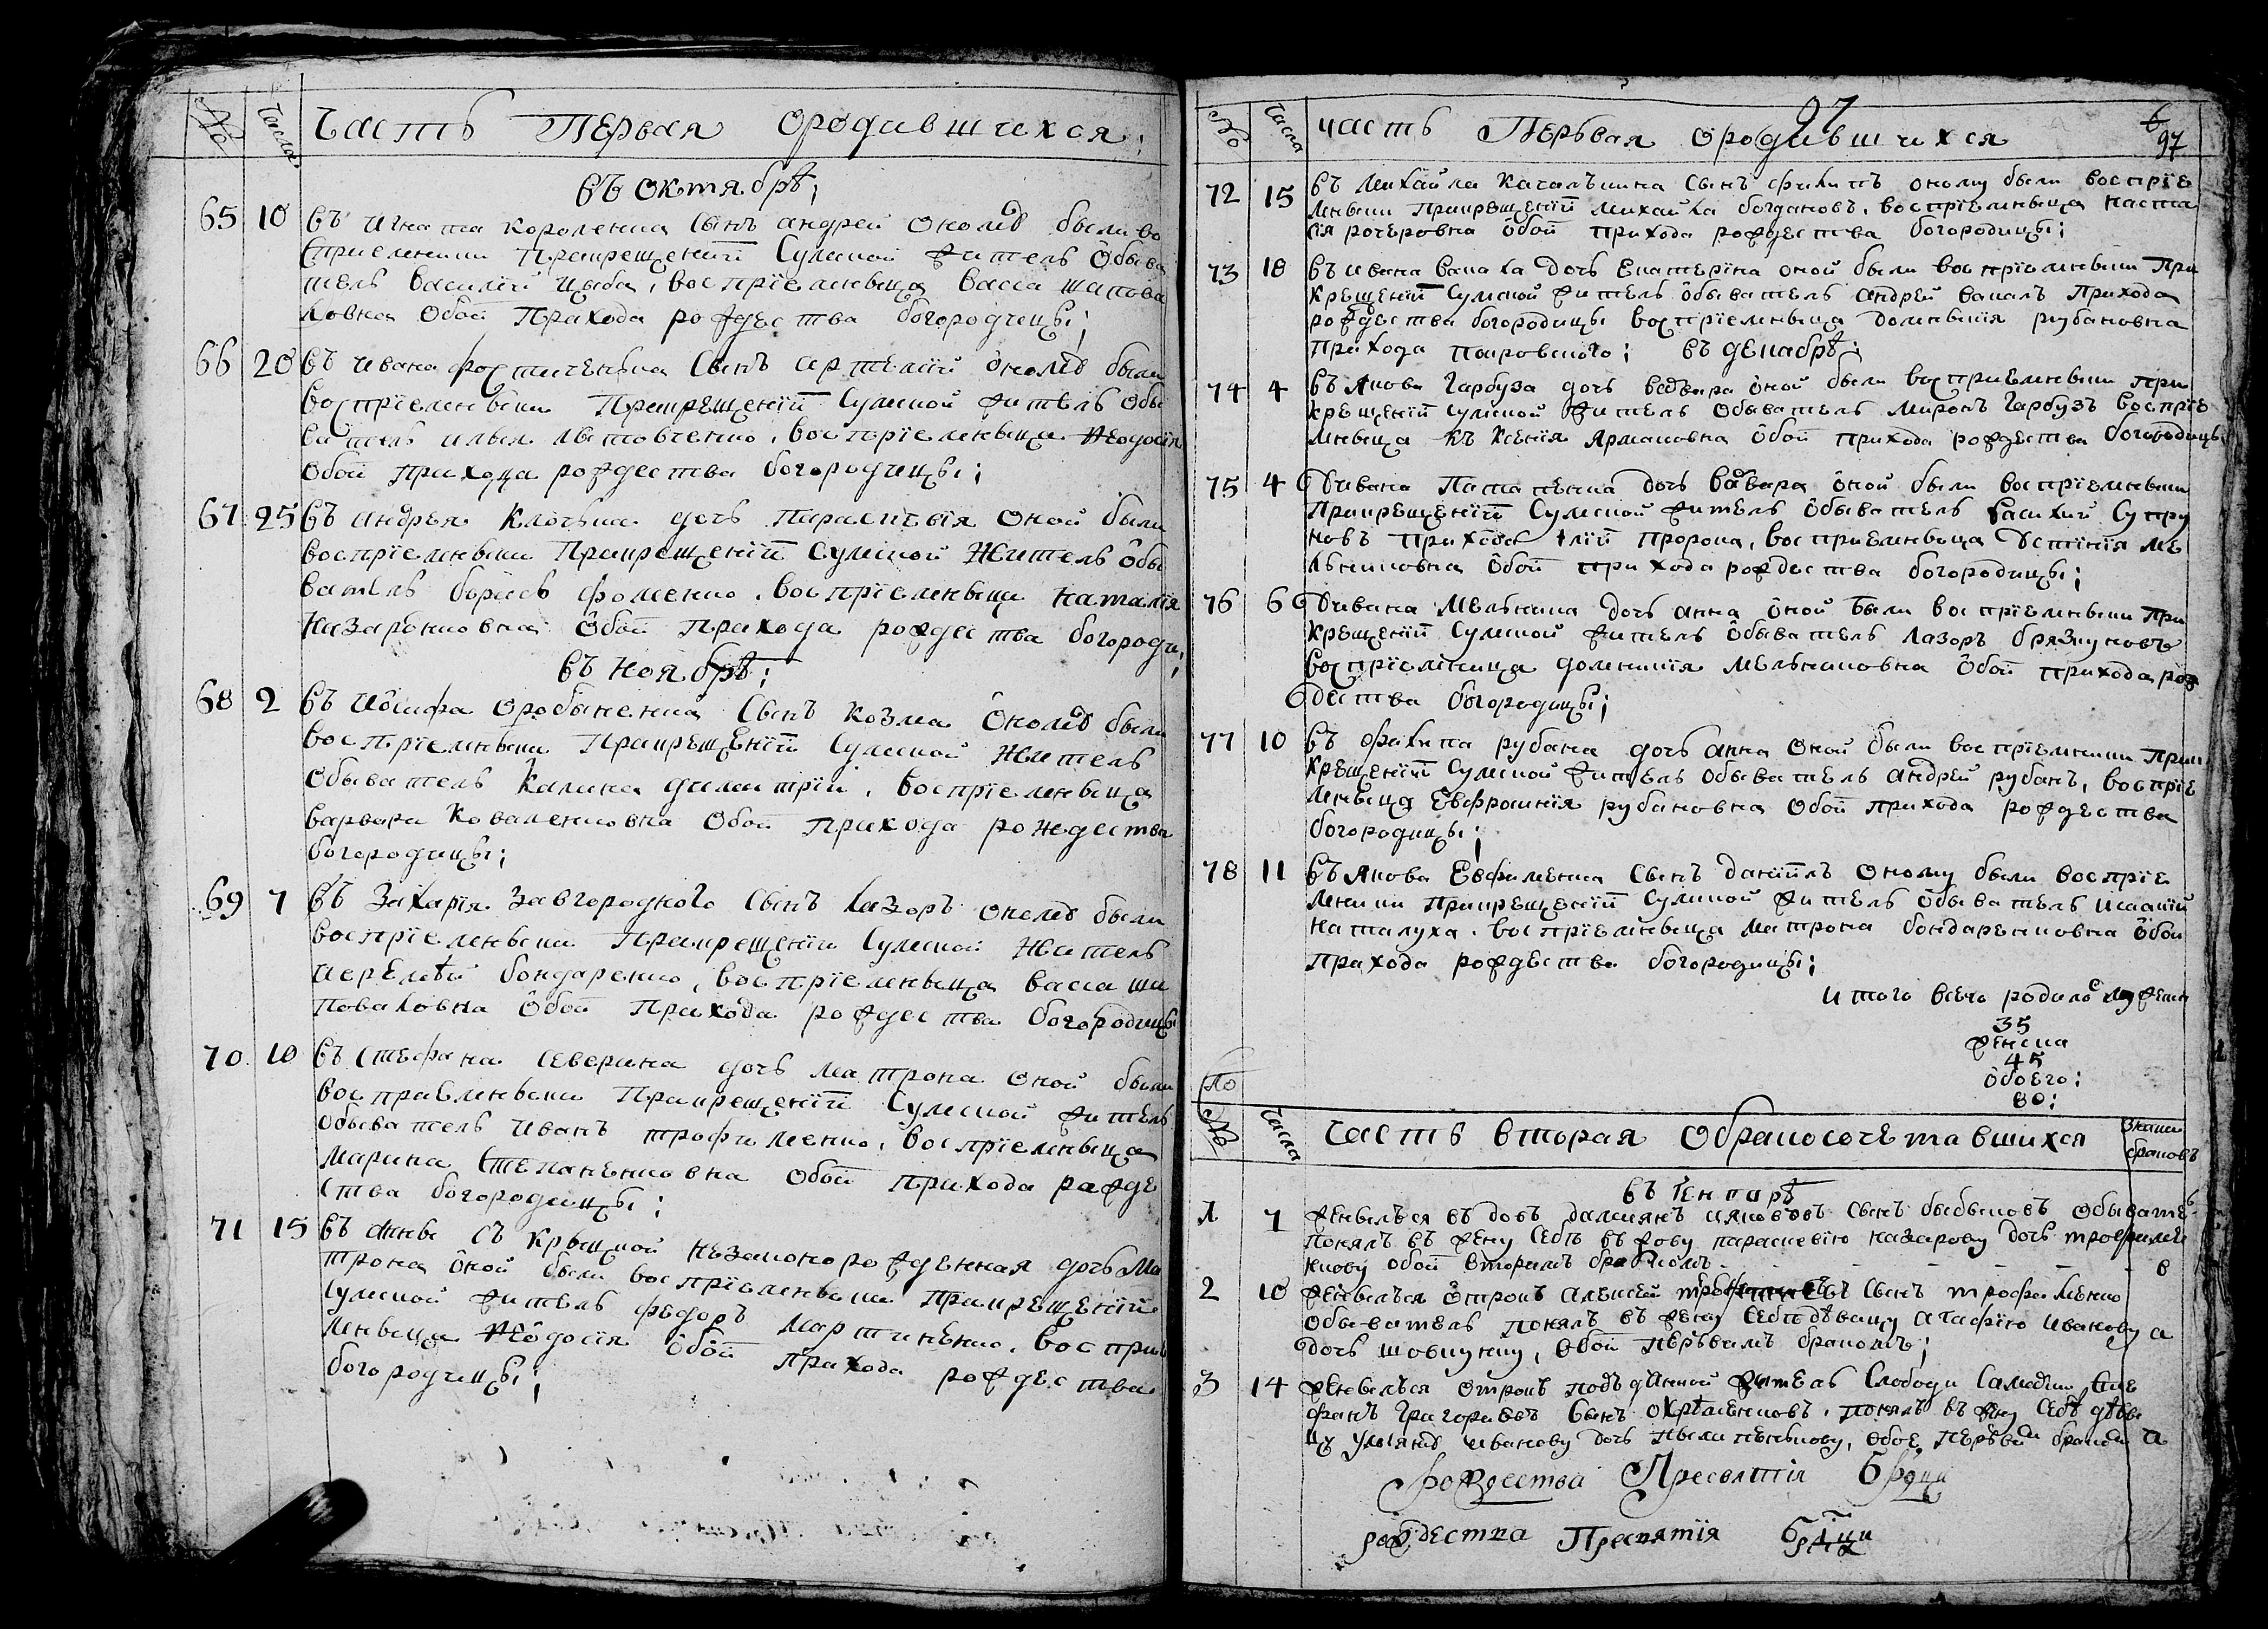 № Числа Часть Первая ородившихся:
въ октябрѣ;
65 10 въ игната короленка сынъ андрей оному были во
сприемники Прикрещенїи Сумской житель Обыва
тель василїй цыба, воспрїемныца васса шапова
ловна обой Прихода рождества богородицы;
66 20 въ ивана сынъ оному были
воспрїемныки Прикрещенїи Сумской житель обы
ватель илья литовченко, воспрїемныца Ѳеодосія
обой прихода рождества богородицы;
67 25 въ андрея дочь параскивія оной были
воспрїемныки Прикрещенїи Сумской Житель обы
ватель борисъ фоменко, воспрїемныца наталія
назаренковна обой Прихода рождества богороди;
въ ноябрѣ;
68 2 въ іосифа сынъ козма оному были
воспрїемныки Прикрещенїи Сумской Житель
обыватель калина димитрїи, воспрїемныца
варвара коваленковна обой Прихода рождества
богородицы;
69 7 въ Захарія завгороднего сынъ лазоръ оному были
воспрїемныки Прикрещенїи Сумской житель
иеремѣй бондаренко, воспрїемныца васса ша
поваловна обой Прихода рождества богородицы
70 10 въ стефана северина дочь матрона оной были
воспрїемныки Прикрещенїи Сумской житель
обыватель иванъ трофименко, воспрїемныца
марина степаненковна обой прихода рожде
ства богородицы;
71 15 въ незаконорожденная дочь ма
трона оной были воспрїемныки Прикрещенїи
Сумской житель федоръ мартиненко, воспрїе
мныца Ѳеодосія обой прихода рождества
богородицы;
97
№ Числа часть Первая ородившихся 97
72 15 въ михайла качалъкина сынъ филипъ оному были воспрїе
мныки Прикрещенїи михайла богдановъ, воспрїемныца наста
сія обой прихода рождества богородицы;
73 18 въ ивана дочь екатерїна оной были воспрїемныки При
Крещенїи Сумской житель обыватель андрей Прихода
рождества богородицы воспрїемныца домныкія рубановна
прихода покровского; въ декабрѣ;
74 4 въ якова гарбуза дочь оной были воспрїемныки при
крещенїи сумской житель обыватель миронъ гарбузъ воспрїе
мныца ксенія ярмаковна обой прихода рождества богородицы
75 4 Уивана дочь варвара оной были воспрїемныки
Прикрещенїи Сумской житель обыватель василий супру
новъ прихода Ілїи пророка, воспрїемныца устинія ме
льниковна обой прихода рождества богородицы;
76 6 Уивана мельника дочь анна оной были воспрїемныки при
крещенїи сумской житель обыватель лазоръ брязкуновъ
воспрїемница домникія мельниковна обой прихода рож
дества богородицы;
77 10 въ филипа рубана дочь анна оной были воспрїемники при
крещенїи сумской житель обыватель андрей рубанъ, воспрїе
мныца евфросинія рубановна обой прихода рождества
богородицы;
78 11 въ якова евфименка сынъ данїилъ оному были воспрїе
мники прикрещенїи сумской житель обыватель исаакїй
каталуха, воспрїемныца матрона бондаренковна обой
прихода рождества богородицы;
итого всего родилос мужеска
35
женска
45
обоего:
80:
По
№ Числа Часть вторая обракосочетавшихся
въ Генварѣ
1 7 женылъся вдовъ дамиянъ сынъ обывате
понялъ въ жену себѣ вдову параскевію назарову дочь трофиме
нкову обой вторимъ бракомъ - - - в
2 10 женылъся отрокъ алексей сынъ трофименко
обыватель понялъ въ жену себѣ дѣвицу агафїю иванову а
дочь обой первымъ бракомъ;
3 14 женылъся отрокъ подъданной житель слободи сте
фанъ григориевъ сынъ понялъ въ жену себѣ дѣви
цу иванову дочь обое первым браком а
рождества Пресвятія Брдци
рождества Пресвятія Брдци